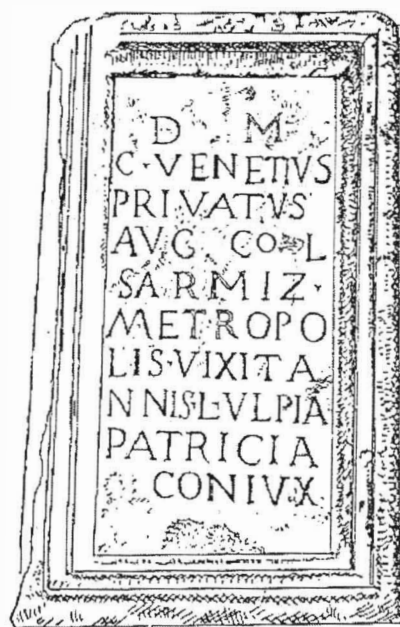 D M
C·VENETIVS
PRIVATVS
AVG COL
SARMIZ·
METROPO
LIS·VIXITA
NNIS·L·VLPIA
PATRICIA
CONIVX